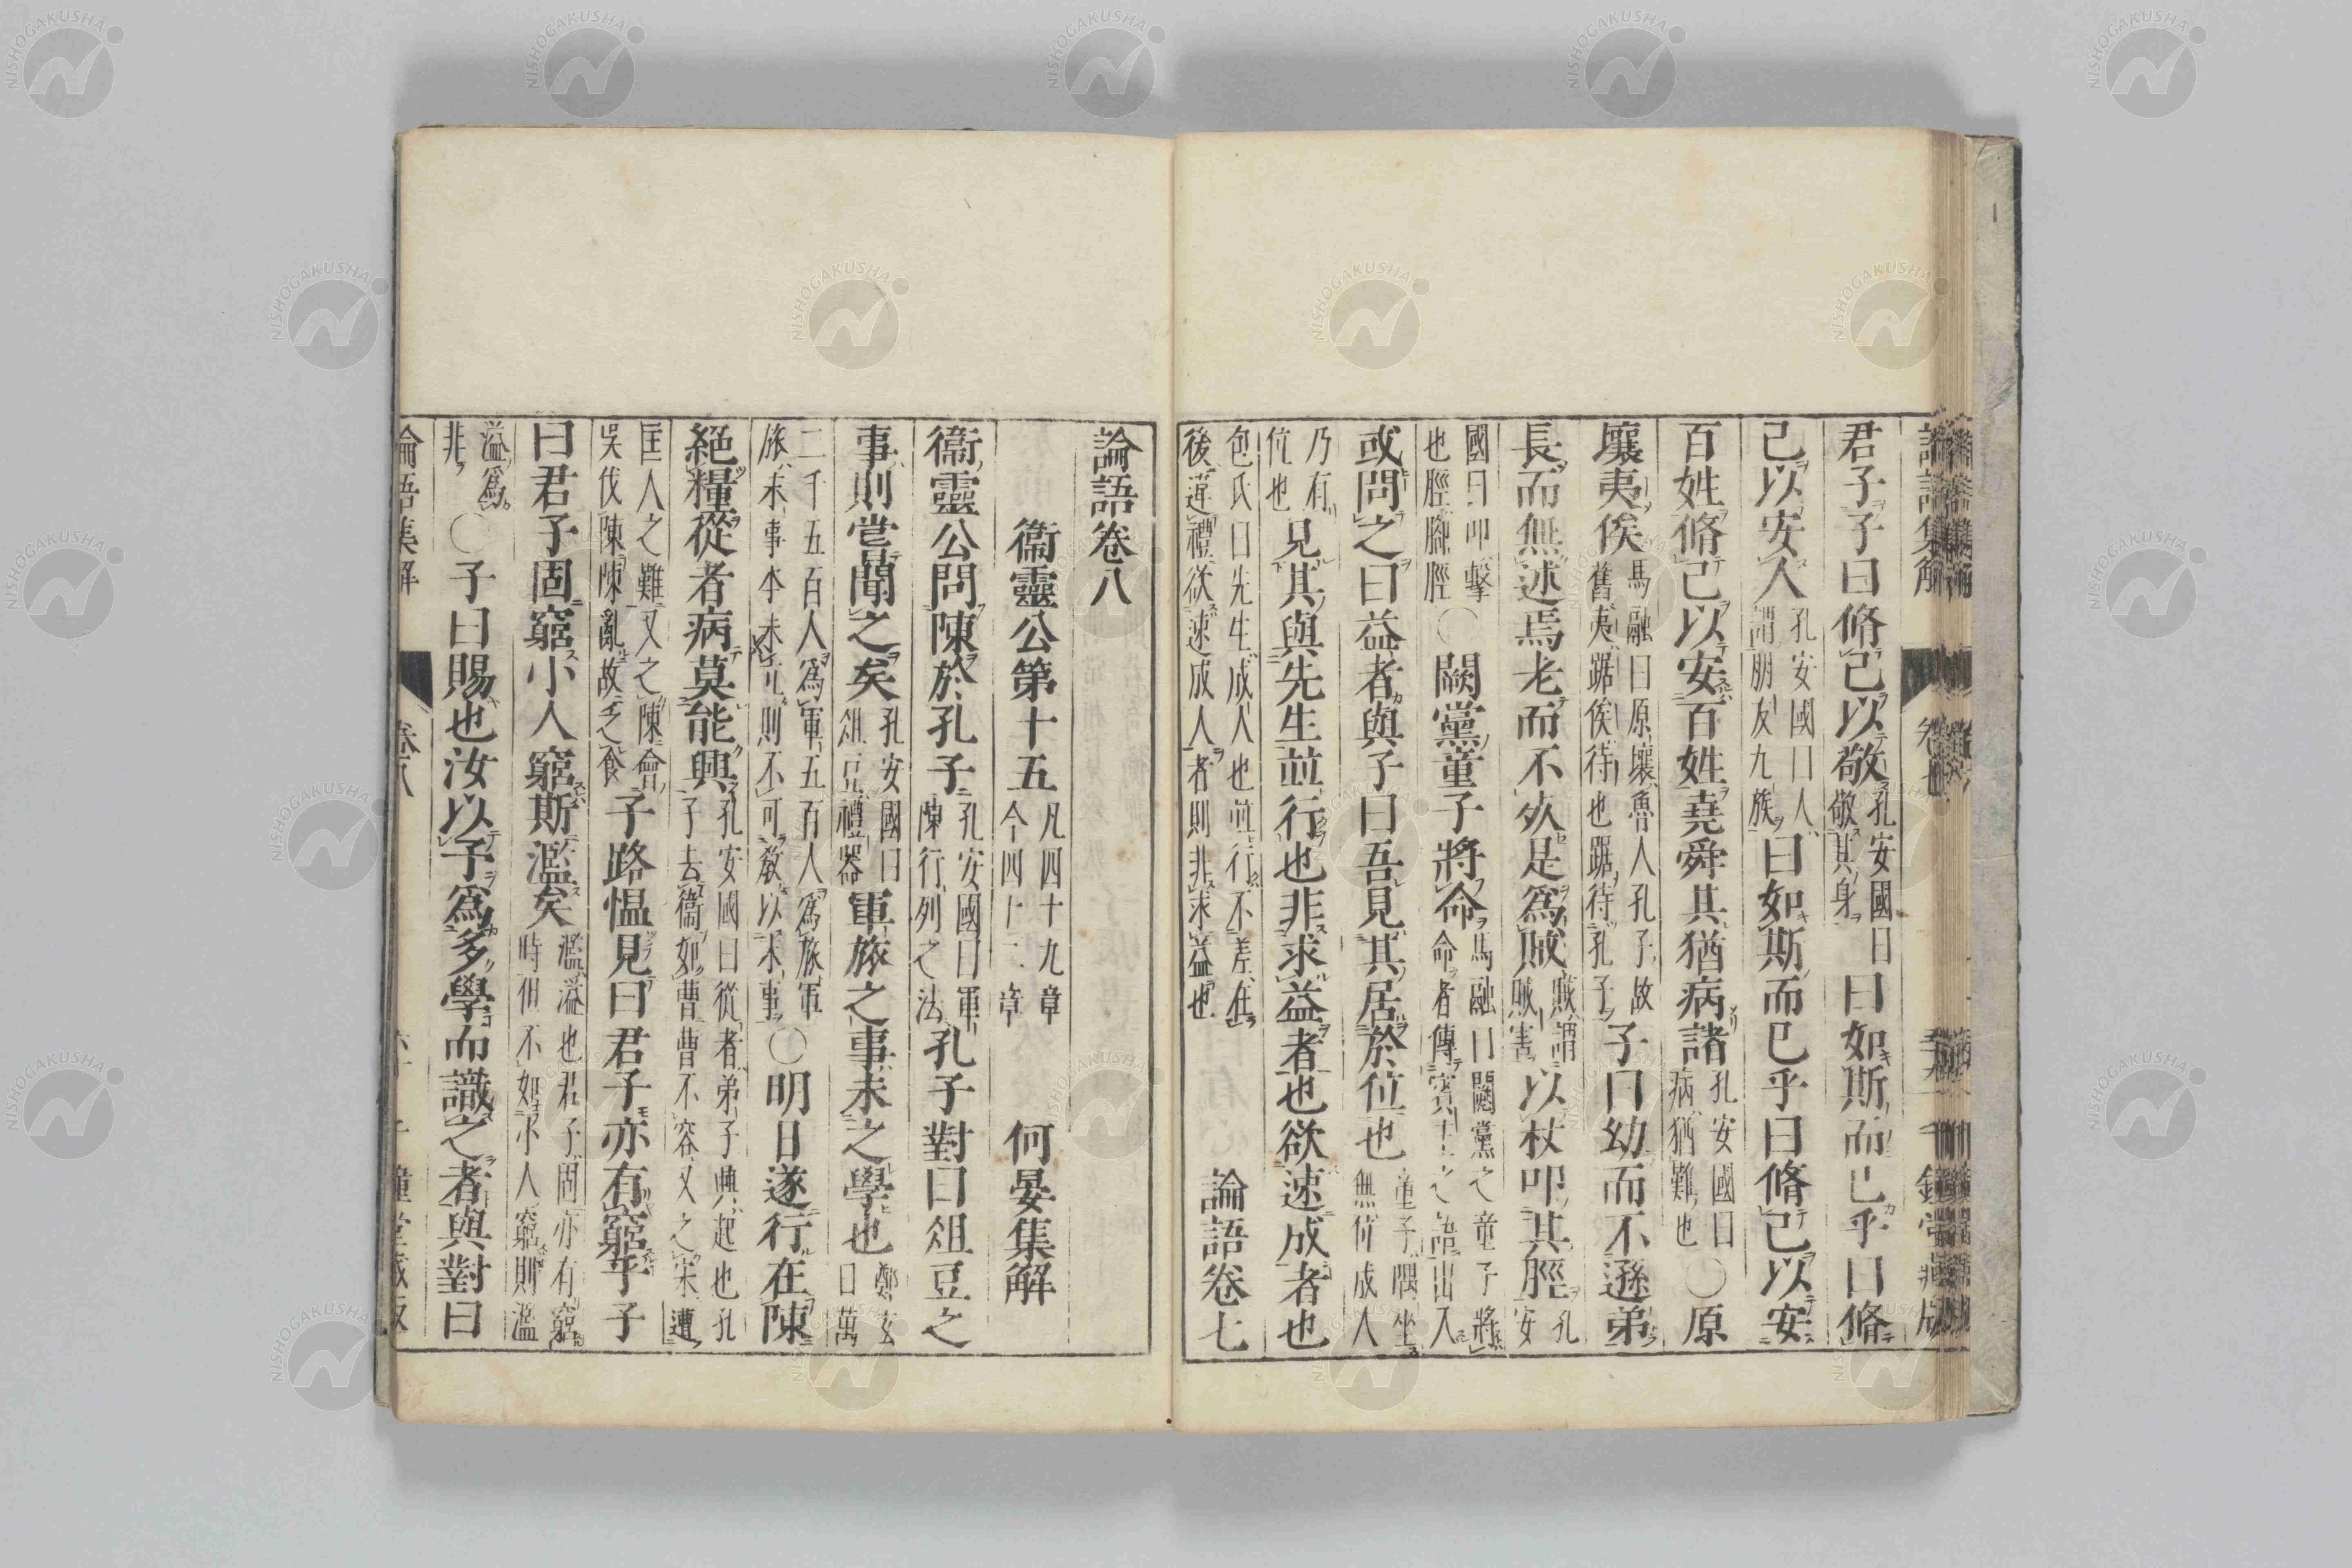 君子子曰脩己以敬孔安國曰敬其身曰如斯而已乎曰脩
己以安人孔安國曰人謂朋友九族曰如斯而已乎曰脩己以安
百姓脩己以安百姓堯舜其猶病諸孔安國曰病猶難也○原
壤夷俟馬融曰原壤魯人孔子故舊夷踞俟待也踞待孔子子曰幼而不遜弟
長而無述焉老而不死是爲賊賊謂賊害以杖叩其脛孔安
國曰叩擊也脛腳脛○闕黨童子將命馬融曰闕黨之童子將命者傳賓主之語出入
或問之曰益者與子曰吾見其居於位也童子隅坐無位成人
乃有位也見其與先生並行也非求益者也欲速成者也
包氏曰先生成人也並行不差在後違禮欲速成人者則非求益也 論語卷七
論語卷八
衞靈公第十五凡四十九章今四十二章 何晏集解
衞靈公問陳於孔子孔安國曰軍陳行列之法孔子對曰俎豆之
事則嘗聞之矣孔安國曰俎豆禮器軍旅之事未之學也鄭玄曰萬
二千五百人爲軍五百人爲旅軍旅末事本未立則不可教以末事○明日遂行在陳
絕糧從者病莫能興孔安國曰從者弟子興起也孔子去衞如曹曹不容又之宋遭
匡人之難又之陳會吳伐陳陳亂故乏食子路慍見曰君子亦有窮乎子
曰君子固窮小人窮斯濫矣濫溢也君子固亦有窮時但不如小人窮則濫
溢爲非○子曰賜也汝以予爲多學而識之者與對曰
論語集解 卷八